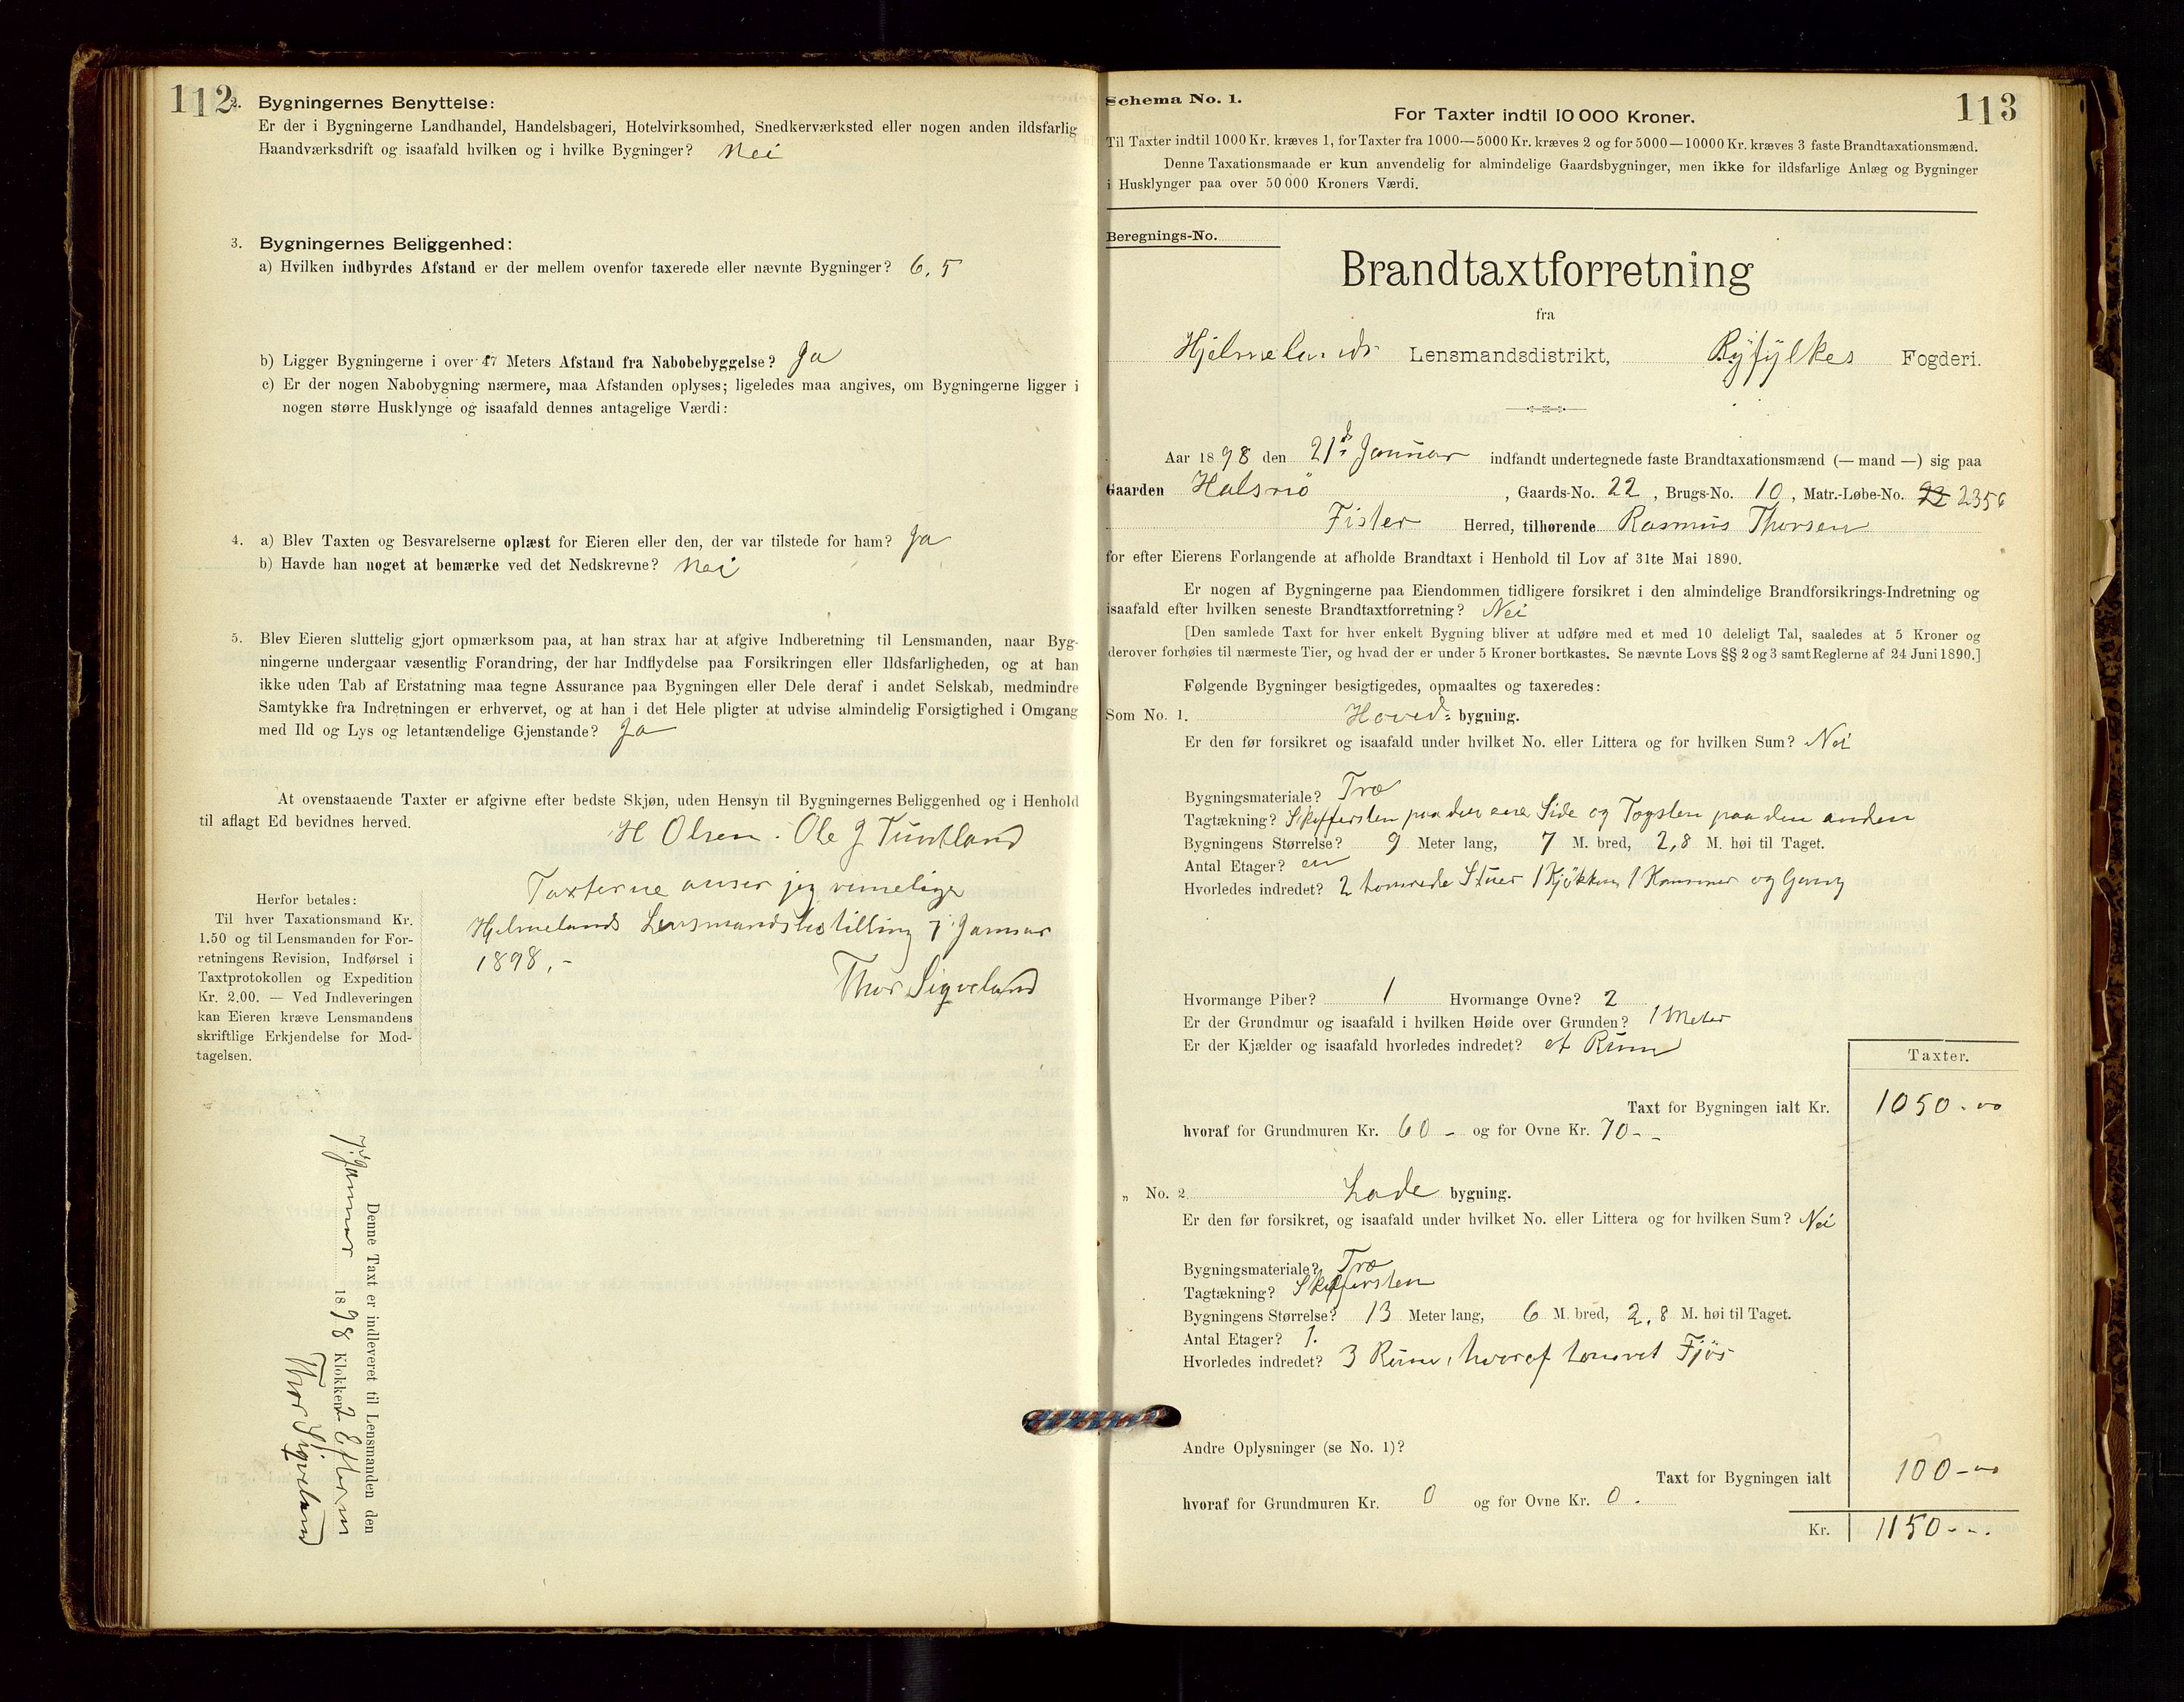 112
2. Bygningernes Benyttelse:
Er der i Bygningerne Landhandel, Handelsbageri, Hotelvirksomhed, Snedkerværksted eller nogen anden ildsfarlig
Haandværksdrift og isaafald hvilken og i hvilke Bygninger? Nei
3. Bygningernes Beliggenhed:
a) Hvilken indbyrdes Afstand er der mellem ovenfor taxerede eller nævnte Bygninger? 6,5
b) Ligger Bygningerne i over 47 Meters Afstand fra Nabobebyggelse? Ja
c) Er der nogen Nabobygning nærmere, maa Afstanden oplyses; ligeledes maa angives, om Bygningerne ligger i
nogen større Husklynge og isaafald dennes antagelige Værdi:
4. a) Blev Taxten og Besvarelserne oplæst for Eieren eller den, der var tilstede for ham? Ja
b) Havde han noget at bemærke ved det Nedskrevne? Nei
5. Blev Eieren sluttelig gjort opmærksom paa, at han strax har at afgive Indberetning til Lensmanden, naar Byg-
ningerne undergaar væsentlig Forandring, der har Indflydelse paa Forsikringen eller Ildsfarligheden, og at han
ikke uden Tab af Erstatning maa tegne Assurance paa Bygningen eller Dele deraf i andet Selskab, medmindre
Samtykke fra Indretningen er erhvervet, og at han i det Hele pligter at udvise almindelig Forsigtighed i Omgang
med Ild og Lys og letantændelige Gjenstande? Ja
At ovenstaaende Taxter er afgivne efter bedste Skjøn, uden Hensyn til Bygningernes Beliggenhed og i Henhold
til aflagt Ed bevidnes herved.
H Olsen. Ole J Tuntland
Taxterne anser jeg rimelige
Hjelmelands Lensmandsbestilling 7 Januar
1898,-
Thor Sigveland
Herfor betales:
Til hver Taxationsmand Kr.
1.50 og til Lensmanden for For-
retningens Revision, Indførsel i
Taxtprotokollen og Expedition
Kr. 2.00. — Ved Indleveringen
kan Eieren kræve Lensmandens
skriftlige Erkjendelse for Mod-
tagelsen.
Denne Taxt er indleveret til Lensmanden den
7de Januar 1898 Klokken 2 Efterm
Thor Sigveland
113
Schema No. 1.
For Taxter indtil 10 000 Kroner.
Til Taxter indtil 1000 Kr. kræves 1, for Taxter fra 1000—5000 Kr. kræves 2 og for 5000—10000 Kr. kræves 3 faste Brandtaxationsmænd.
Denne Taxationsmaade er kun anvendelig for almindelige Gaardsbygninger, men ikke for ildsfarlige Anlæg og Bygninger
i Husklynger paa over 50 000 Kroners Værdi.
Beregnings-No.
Brandtaxtforretning
fra
Hjelmelands Lensmandsdistrikt, Ryfylkes Fogderi.
Aar 1898 den 21de Januar indfandt undertegnede faste Brandtaxationsmænd (— mand —) sig paa
Gaarden Halsnö, Gaards-No. 22, Brugs-No. 10, Matr.-Løbe-No. 22 2356
Fister Herred, tilhørende Rasmus Thorsen
for efter Eierens Forlangende at afholde Brandtaxt i Henhold til Lov af 31te Mai 1890.
Er nogen af Bygningerne paa Eiendommen tidligere forsikret i den almindelige Brandforsikrings-Indretning og
isaafald efter hvilken seneste Brandtaxtforretning? Nei
[Den samlede Taxt for hver enkelt Bygning bliver at udføre med et med 10 deleligt Tal, saaledes at 5 Kroner og
derover forhøies til nærmeste Tier, og hvad der er under 5 Kroner bortkastes. Se nævnte Lovs §§ 2 og 3 samt Reglerne af 24 Juni 1890.]
Følgende Bygninger besigtigedes, opmaaltes og taxeredes:
Som No. 1. Hoved- bygning.
Er den før forsikret og isaafald under hvilket No. eller Littera og for hvilken Sum? Nei
Bygningsmateriale? Træ
Tagtækning? Skiffersten paa den ene Side og Tagsten paa den anden
Bygningens Størrelse? 9 Meter lang, 7 M. bred, 2,8 M. høi til Taget.
Antal Etager? en
Hvorledes indredet? 2 tomrede Stuer 1 Kjökken 1 Kammer og Gang
Hvormange Piber? 1 Hvormange Ovne? 2
Er der Grundmur og isaafald i hvilken Høide over Grunden? 1 Meter
Er der Kjælder og isaafald hvorledes indredet? et Rum
Taxter.
Taxt for Bygningen ialt Kr. 1050-00
hvoraf for Grundmuren Kr. 60 - og for Ovne Kr. 70--
„ No. 2 Lade bygning.
Er den før forsikret, og isaafald under hvilket No. eller Littera og for hvilken Sum? Nei
Bygningsmateriale? Træ
Tagtækning? Skiffersten
Bygningens Størrelse? 13 Meter lang, 6 M. bred, 2,8 M. høi til Taget.
Antal Etager? 1.
Hvorledes indredet? 3 Rum, hvoraf tomret Fjös
Andre Oplysninger (se No. 1)?
Taxt for Bygningen ialt 100-00
hvoraf for Grundmuren Kr. 0 og for Ovne Kr. 0.
Kr. 1150--.